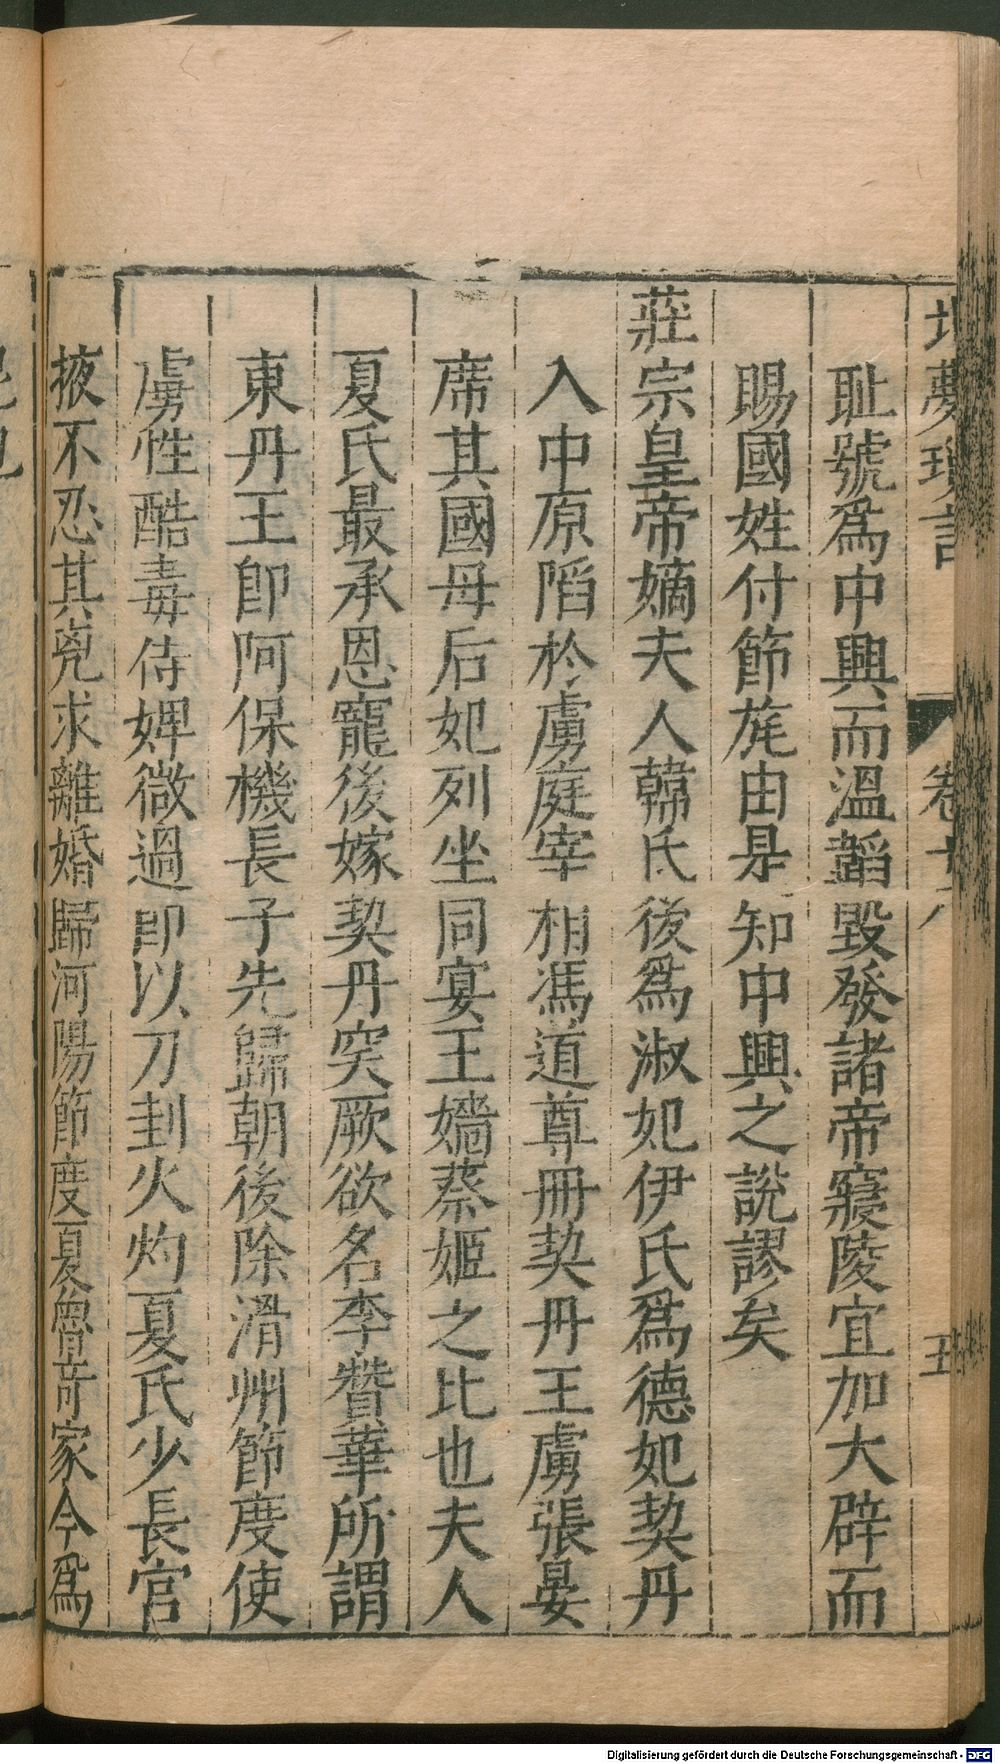 北夢瑣言 卷十八 五
耻號爲中興而溫韜毀發諸帝寢陵宜加大辟而
賜國姓付節旄由是知中興之說謬矣
莊宗皇帝嫡夫人韓氏後爲淑妃伊氏爲德妃契丹
入中原陷於虜庭宰相馮道尊冊契丹王虜張宴
席其國母后妃列坐同宴王嬙蔡姬之比也夫人
夏氏最承恩寵後嫁契丹突厥欲名李贊華所謂
東丹王卽阿保機長子先歸朝後除滑州節度使
虜性酷毒侍婢微過卽以刀刲火灼夏氏少長宮
掖不忍其兇求離婚歸河陽節度夏魯奇家今爲
Digitalisierung gefördert durch die Deutsche Forschungsgemeinschaft - DFG